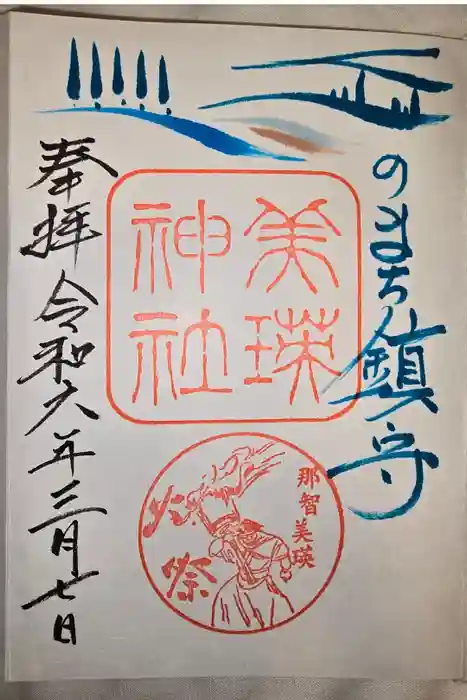 のまち鎮守
美瑛
神社
那智美瑛
火祭
奉拝 令和六年三月七日